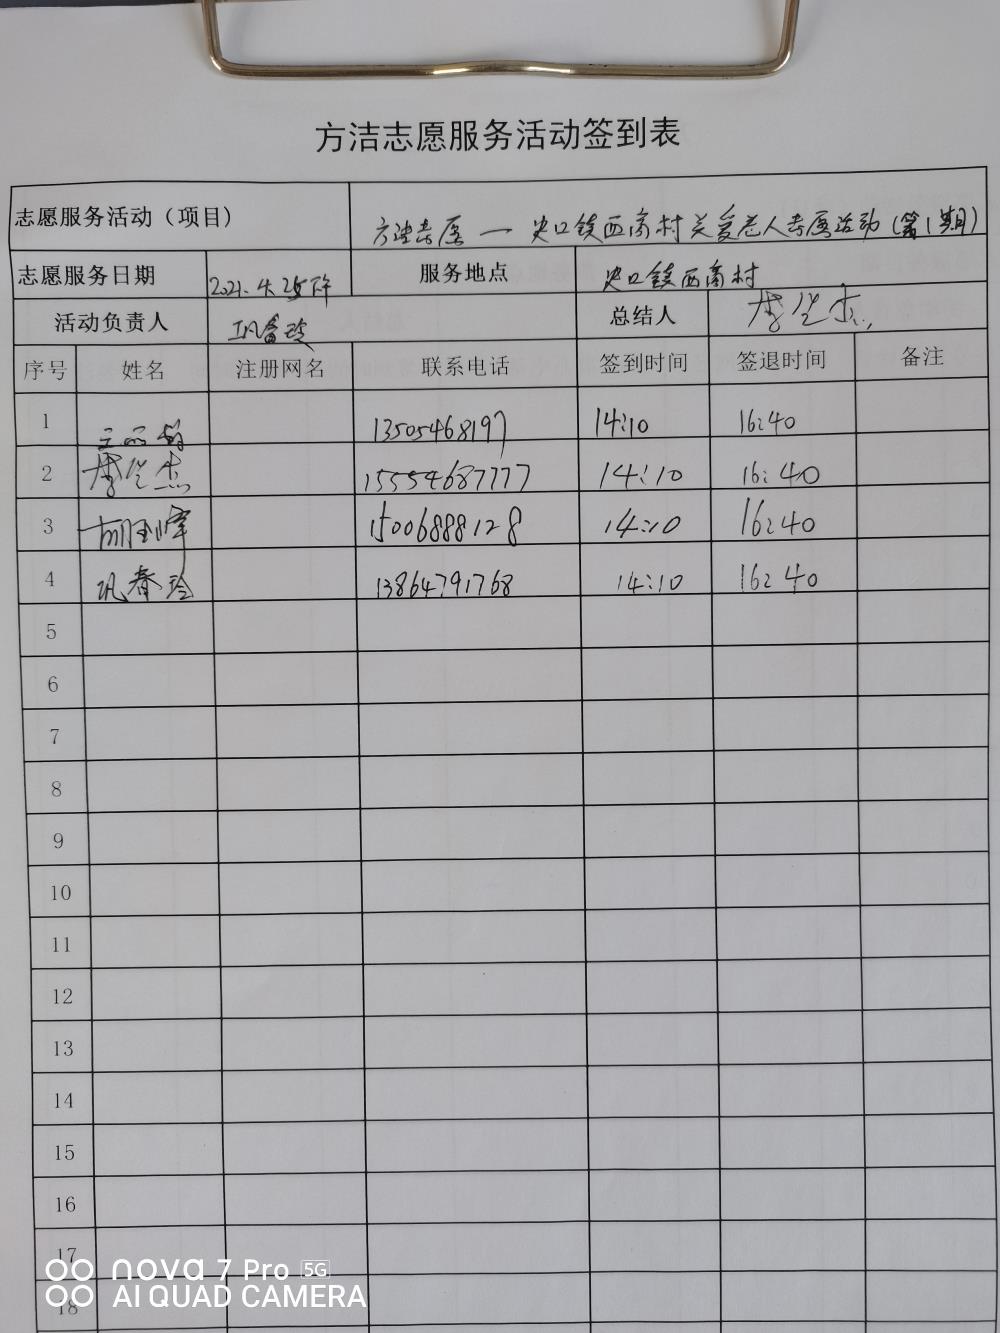 方洁志愿服务活动签到表
志愿服务活动（项目） 方洁志愿 — 史口镇西商村关爱老人志愿活动（第1期）
志愿服务日期 2021.4.25下午 服务地点 史口镇西商村
活动负责人 巩春玲 总结人 李
序号 姓名 注册网名 联系电话 签到时间 签退时间 备注
1 13505468197 14:10 16:40
2 李 15554687777 14:10 16:40
3 胡 峰 15006888128 14:10 16:40
4 巩春玲 13864791768 14:10 16:40
5
6
7
8
9
10
11
12
13
14
15
16
17
18
nova 7 Pro 5G
AI QUAD CAMERA